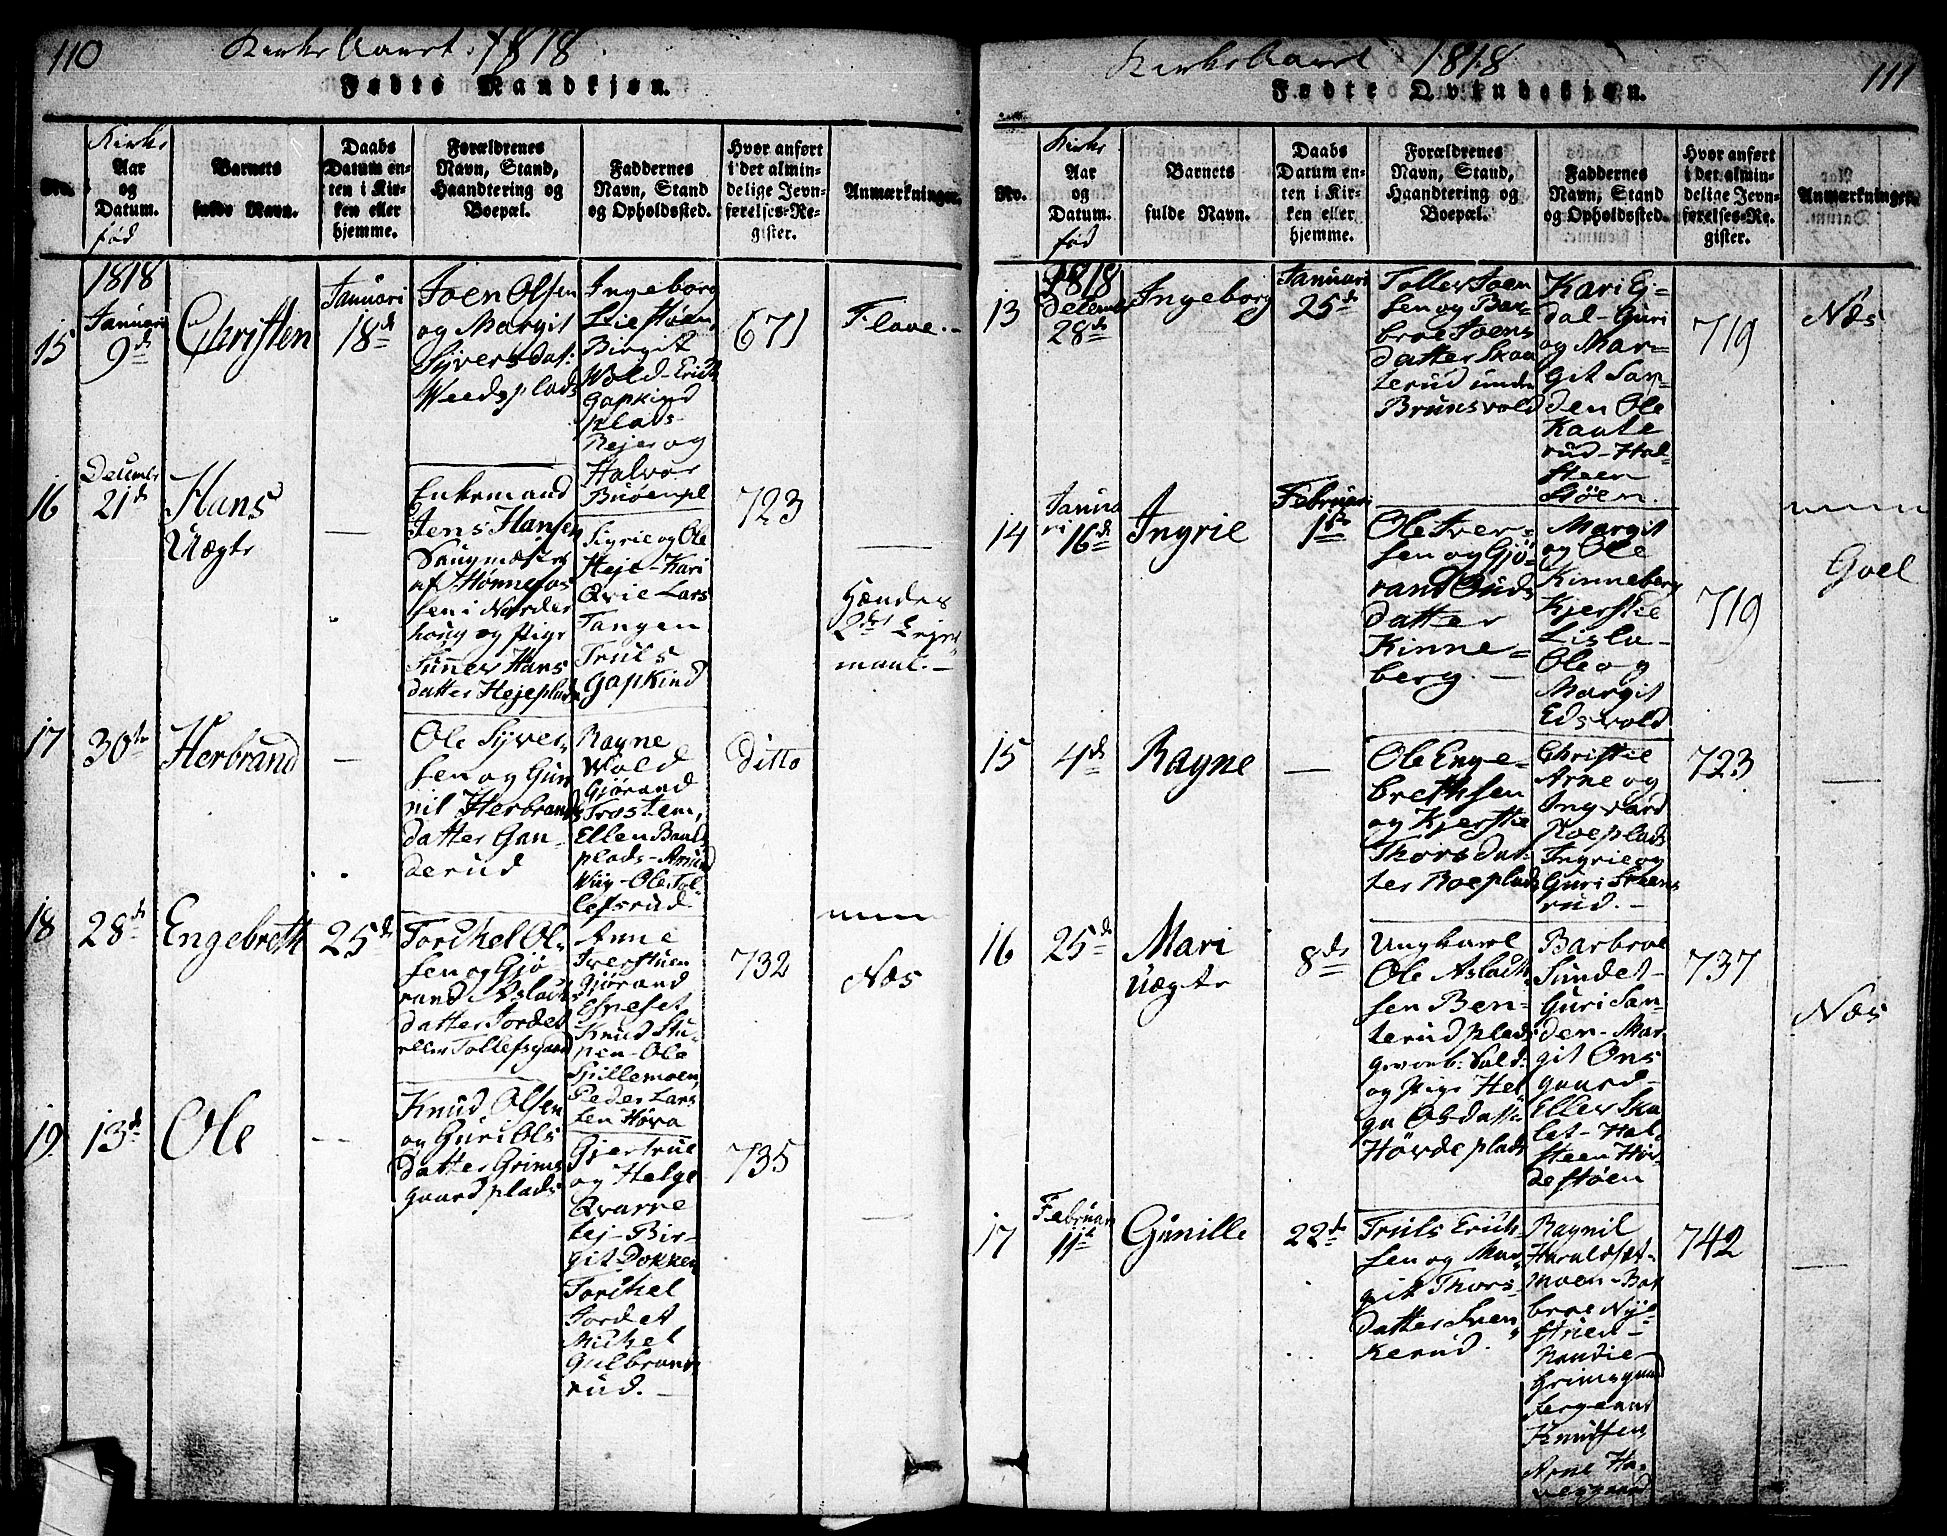 110
Kirke Aaret 1818.
Fødte Mandkjøn.
No.
Kirke
Aar
og
Datum.
fød
Barnets
fulde Navn.
Daabs
Datum en-
ten i Kir-
ken eller
hjemme.
Forældrenes
Navn, Stand,
Haandtering og
Boepæl.
Faddernes
Navn, Stand
og Opholdssted.
Hvor anført
i det almin-
delige Jevn-
førelses-Re-
gister.
Anmærkninger.
15
1818
Januari
9de
Christen
Januari
18d
Joen Olsen
og Margit
Syversdat:
Weedsplads
Ingeborg
Liestøen,
Birgit
Wold-Erich
Gapkind
plads
Rejer og
Halvor
Buøenpl
671
Flave.-
16
Decembr
21d
Hans
Uægte
—
Enkemand
Jens Hansen
Saugmæster
af Hønnefos
sen i Norder
houg og Pige
Sünner Hans
datter Hejeplads
Sigrie og Ole
Heje-Kari
Qvie Lars
Tangen
Truls
Gapkind
723
—
Hendes
2det Lejer
maal.-
17
30te
Herbrand
—
Ole Syver-
sen og Gun
nil Herbrands
datter Gan-
derud
Ragne
Wold
Gjørand
Trostem,
Ellen
plads-Amund
Wiig-Ole Tol-
lefsrud.
Ditto
18
28d
Engebreth
25d
Torchel Ol-
sen og Gjø
rand Aslachs
datter Jordet
eller Tollefsgaard
Anne
Iverstuen
Gjørand
Esneset
Knud Stu-
nen-Ole
Spillemoen,
Peder Lars
sen Høva
732
Næs
19.
13d
Ole
—
Knud Olsen
og Guri Ols
datter Grims
gaardplads
Gjertrue
og Helge
Qvarre
tej-Bir-
git Dokken
Torchel
Jordet
Michel
Gulbrands
rud.-
735
—
111
Kirke Aaret 1818
Fødte Qvindekjøn.
No.
Kirke
Aar
og
Datum.
fød
Barnets
fulde Navn.
Daabs
Datum en-
ten i Kir-
ken eller
hjemme.
Forældrenes
Navn, Stand,
Haandtering og
Boepæl.
Faddernes
Navn, Stand
og Opholdssted.
Hvor anført
i det almin-
delige Jevn-
førelses-Re-
gister.
Anmærkninger.
13
1818
Decemb
28de
Ingeborg
Januari
25de
Toller Joen
sen og Bar-
broe Joens
datter Skaa
terud under
Brunsvold
Kari Ej-
dal-Guri
og Mar-
git San-
den Ole
Kaate
rud-Hal-
steen
Støen.
719
Næs
14
Janua
ri 16de
Ingrie
Februari
1ste
Ole Iver-
sen og Gjø-
rand Guds
datter
Kinne-
berg.-
Margit
og Ole
Kinneberg
Kjerstie
Lisla-
Ole og
Margit
Edsvold
719
Goel
15
4de
Ragne
—
Ole Enge-
brethsen
og Kjerstie
Thorsdat:
ter Roeplads
Christie
Arne og
Ingvard
Roeplads
Ingrie og
Guri Steens
rud.-
723
—
16
25de
Mari
Uægte
8de
Ungkarl
Ole Aslach
sen Ben-
terud plads
gevorb: Sold:
og Pige Hel
ga Olsdatte
Hövdeplads
Barbroe
Sundet-
Guri San-
den-Mar
git Ons
gaard-
Eller Ska
let-Hal-
steen Høv-
destøen
737
Næs
17
Februari
11te
Gunille
22de
Truls Erich
sen og Mar
git Thors-
datter Sven
kerud.
Ragnil
Haraldset-
moen-Bar
broe Nÿe
strien-
Randie
Grimsgaard
Sergeant
Knudsen
Arne Ha-
vesgaard
742
—